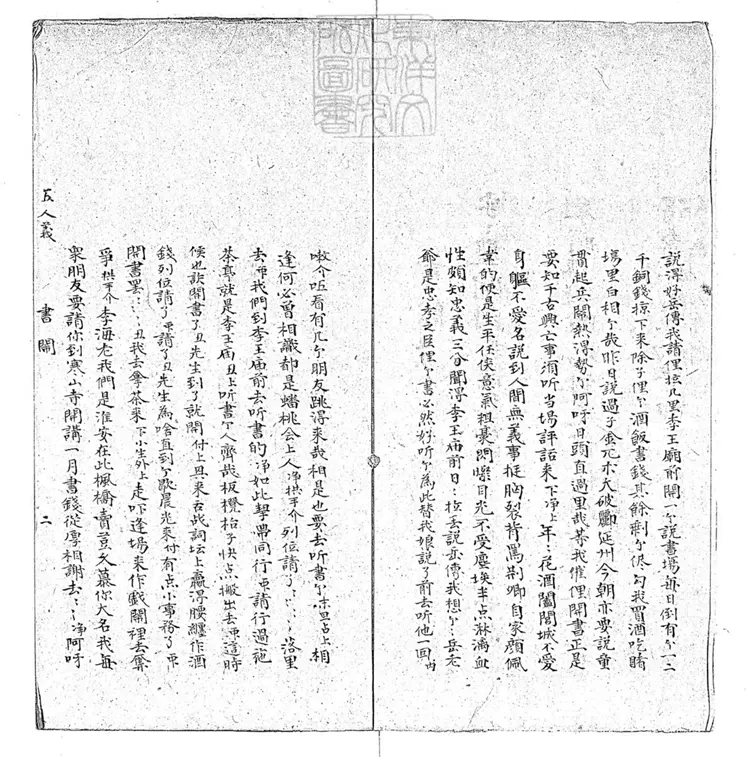 說得好岳傳我請俚拉几里李王廟前開一个說書場每日倒有个一二
千銅錢掠下來除子俚个酒飯書錢其餘剩个侭勾我買酒吃賭
場里白相个哉昨日說過子金兀朮大破鄜延州今朝亦要說童
貫起兵閙熱得勢个阿呀日頭直過里哉等我催俚開書正是
要知千古興亡事須听当場評話來下淨上年〻花酒闔閭城不愛
身軀不愛名說到人間無義事挺胸裂背罵荆卿自家顔佩
韋的便是生平任俠意氣粗豪兩

目光不受塵埃半点淋漓血
性頗知忠義三分聞得李王庙前日〻拉丢說岳傳我想个〻岳老
爺是忠孝之臣俚个書必然好听个為此替我娘說了前去听他一囬内
咗看有几个朋友跳得來哉相是也要去听書个末旦占上相
逢何必曾相識都是蟠桃会上人淨拱手介列位請了〻〻〻落里
去我們到李王庙前去听書的淨如此挈帶同行請行過施
茶亭就是李王庙丑上听書个人齊哉板櫈枱子快点搬出去這時
候也該開書了丑先生到了就開付上

來古战詞坛上贏得腰纏作酒
錢列位請了請了丑先生為啥直到个歇晨光來付有点小事務了
開書罷〻〻丑我去拿茶來下小生外上走吓逢場來作戯閙裡去
爭拱手介李海老我們是淮安在此楓橋賣荳久慕你大名我每
衆朋友要請你到寒山寺開講一月書錢從厚相謝去〻〻淨阿呀
五人義
書閙
二
東洋文
化研究
所圖書